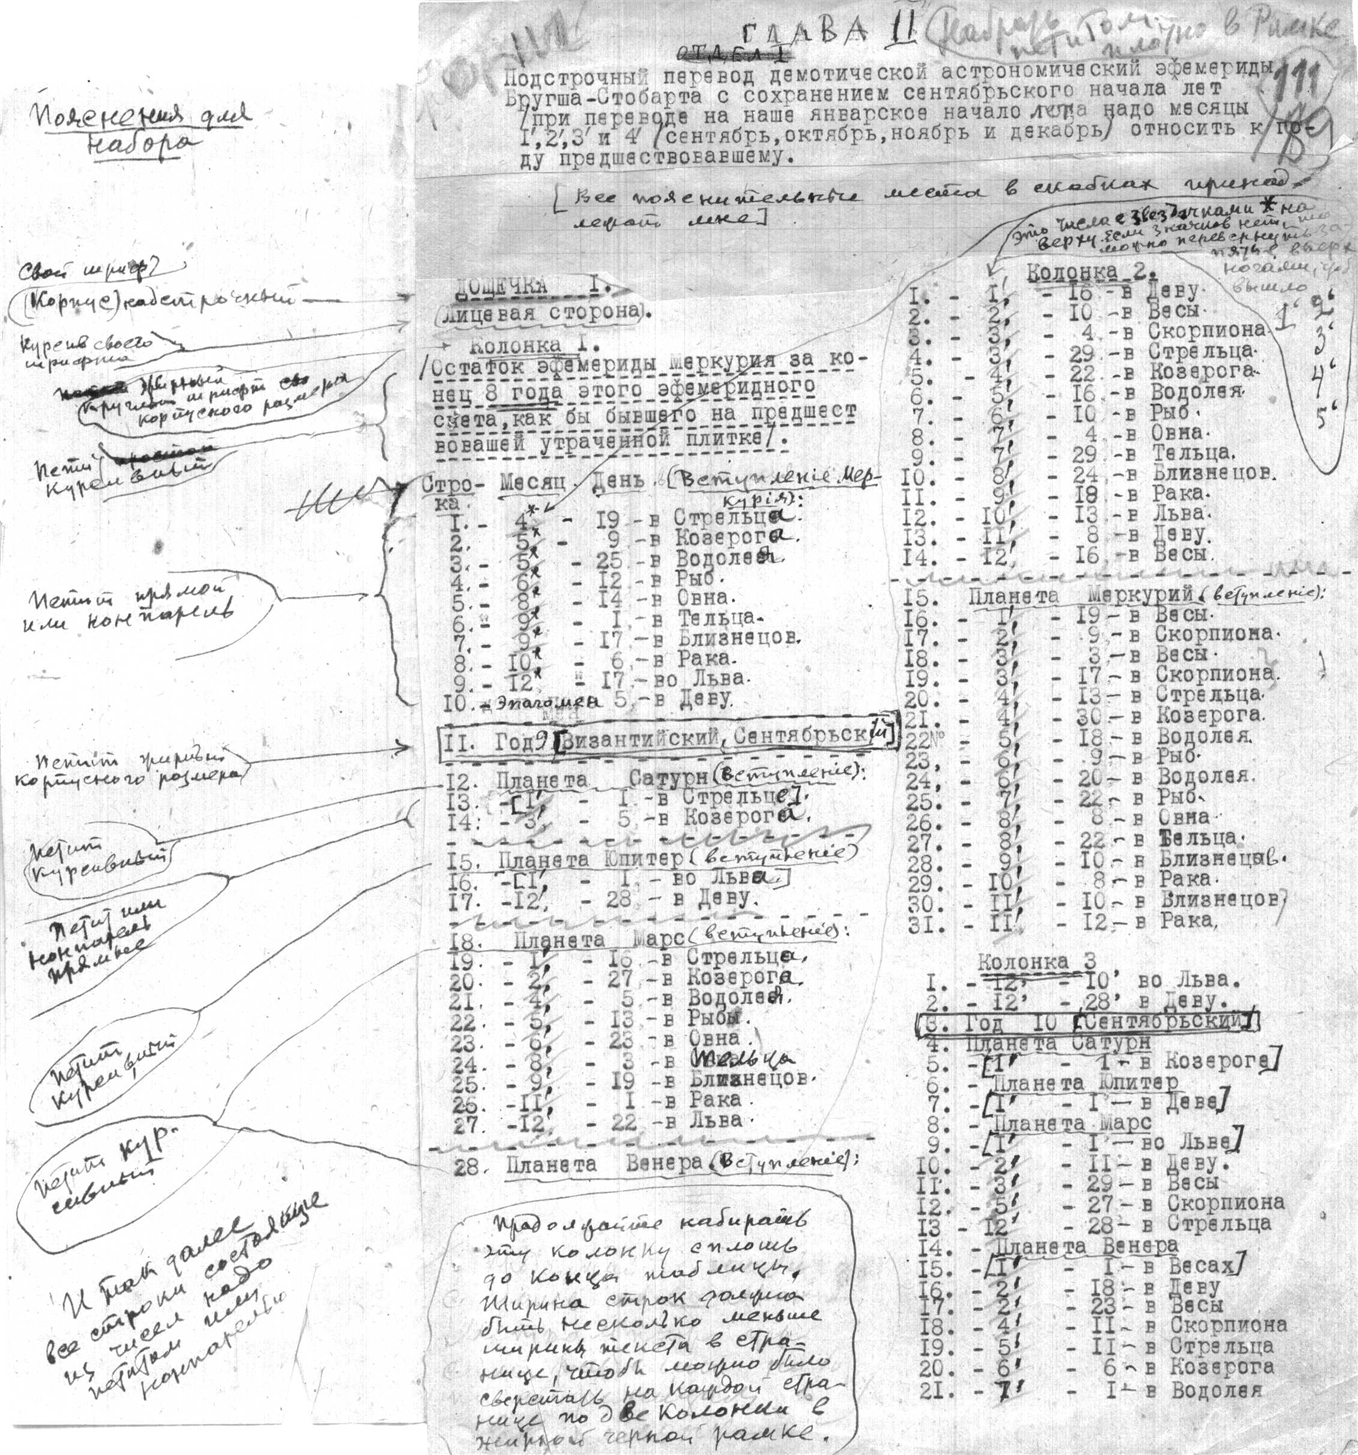 ГЛАВА II
Набрать петитом плотно в Рамке
ОТДЕЛ I
111
Подстрочный перевод демотической астрономический эфемериды
Бругша-Стобарта с сохранением сентябрьского начала лет
/при переводе на наше январское начало лета надо месяцы
1',2',3' и 4' /сентябрь,октябрь,ноябрь и декабрь/ относить к го-
ду предшествовавшему.
[Все пояснительные места в скобках принад-
лежат мне]
Пояснения для
набора
Свой шрифт
(Корпус) надстрочный
Курсив своего
шрифта
жирный
круглый шрифт
корпусного размера
Петит
курсивный
Петит прямой
или нонпарель
Петит жирный
корпусного размера
Петит
курсивный
Петит или
нонпарель
прямые
Петит
курсивный
Петит кур-
сивный
И так далее
все строки состоящие
из чисел надо
петитом или
нонпарелью
ДОЩЕЧКА I.
(Лицевая сторона).
Колонка I.
/Остаток эфемериды Меркурия за ко-
нец 8 года этого эфемеридного
счета,как бы бывшего на предшест
вовашей утраченной плитке/.
Стро- Месяц День (Вступленіе Мер-
ка. курія):
1. - 4* - 19 - в Стрельца
2. - 5* - 9 - в Козерога.
3. - 5* - 25 - в Водолея
4. - 6* - 12 - в Рыб.
5. - 8* - 14 - в Овна.
6. - 9* - I - в Тельца.
7. - 9* - 17 - в Близнецов.
8. - 10* - 6 - в Рака.
9. - 12* - 17 - во Льва.
10. - Эпагомен 5 - в Деву.
II. Год 9 [Византийский, Сентябрьский]
12. Планета Сатурн (вступленіе):
13. - [I' - I - в Стрельце].
14. - 3' - 5 - в Козерога.
15. Планета Юпитер (вступленіе)
16. - [I' - I - во Льва.]
17. - 12' - 28 - в Деву.
18. Планета Марс (вступленіе):
19. - I' - 16 - в Стрельца,
20. - 2' - 27 - в Козерога
21. - 4' - 5 - в Водолея.
22. - 5' - 13 - в Рыбы
23. - 6' - 23 - в Овна.
24. - 8' - 3 - в Тельца
25. - 9' - 19 - в Близнецов.
26. - II' - I - в Рака.
27. - 12' - 22 - в Льва.
28. Планета Венера (Вступленіе):
Продолжайте набирать
эту колонку сплошь
до конца таблицы.
Ширина строк должна
быть несколько меньше
ширины текста в стра-
нице, чтобы можно было
сверстать на каждой стра-
нице по две колонки в
жирной черной рамке.
Это числа с звездочками * на
верху. Если значков нет, то
можно перевернуть за-
пятые вверх
ногами, чтоб
вышло
1' 2'
3'
4'
5'
Колонка 2.
I. - I' - 16 - в Деву.
2. - 2' - 10 - в Весы.
3. - 3' - 4 - в Скорпиона
4. - 3' - 29 - в Стрельца.
5. - 4' - 22 - в Козерога.
6. - 5' - 16 - в Водолея.
7. - 6' - 10 - в Рыб.
8. - 7' - 4 - в Овна.
9. - 7' - 29 - в Тельца.
10. - 8' - 24 - в Близнецов.
11. - 9' - 18 - в Рака.
12. - 10' - 13 - в Льва.
13. - II' - 8 - в Деву.
14. - 12' - 16 - в Весы.
15. Планета Меркурий (вступленіе):
16. - I' - 19 - в Весы.
17. - 2' - 9 - в Скорпиона.
18. - 3' - 3 - в Весы.
19. - 3' - 17 - в Скорпиона.
20. - 4' - 13 - в Стрельца.
21. - 4' - 30 - в Козерога.
22. - 5' - 18 - в Водолея.
23. - 6' - 9 - в Рыб.
24. - 6' - 20 - в Водолея.
25. - 7' - 22 - в Рыб.
26. - 8' - 8 - в Овна.
27. - 8' - 22 - в Тельца.
28. - 9' - 10 - в Близнецов.
29. - 10' - 8 - в Рака.
30. - II' - 10 - в Близнецов
31. - II' - 12 - в Рака.
Колонка 3
I. - 12' - 10' во Льва.
2. - 12' - 28' в Деву.
3. Год 10 [Сентябрьский]
4. Планета Сатурн
5. - [1' - I - в Козероге]
6. - Планета Юпитер
7. - [1' - I - в Деве]
8. - Планета Марс
9. - [1' - I - во Льве]
10. - 2' - II - в Деву.
11. - 3' - 29 - в Весы
12. - 5' - 27 - в Скорпиона
13 - 12' - 28 - в Стрельца
14. - Планета Венера
15. - [I' - I - в Весах]
16. - 2' - 18 - в Деву
17. - 2' - 23 - в Весы
18. - 4' - II - в Скорпиона
19. - 5' - II - в Стрельца
20. - 6' - 6 - в Козерога
21. - 7' - I - в Водолея